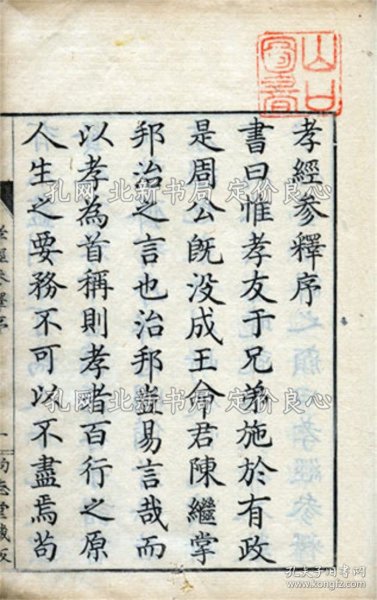 孝經參釋序
書曰惟孝友于兄弟施於有政
是周公既没成王命君陳繼掌
邦治之言也治邦豈易言哉而
以孝為首稱則孝者百行之原
人生之要務不可以不盡焉苟
孝經參釋序
一
尚志堂藏板
孔网 北新书局 定价良心
孔网 北新书局 定价良心
孔网 北新书局 定价良心
孔夫子旧书网